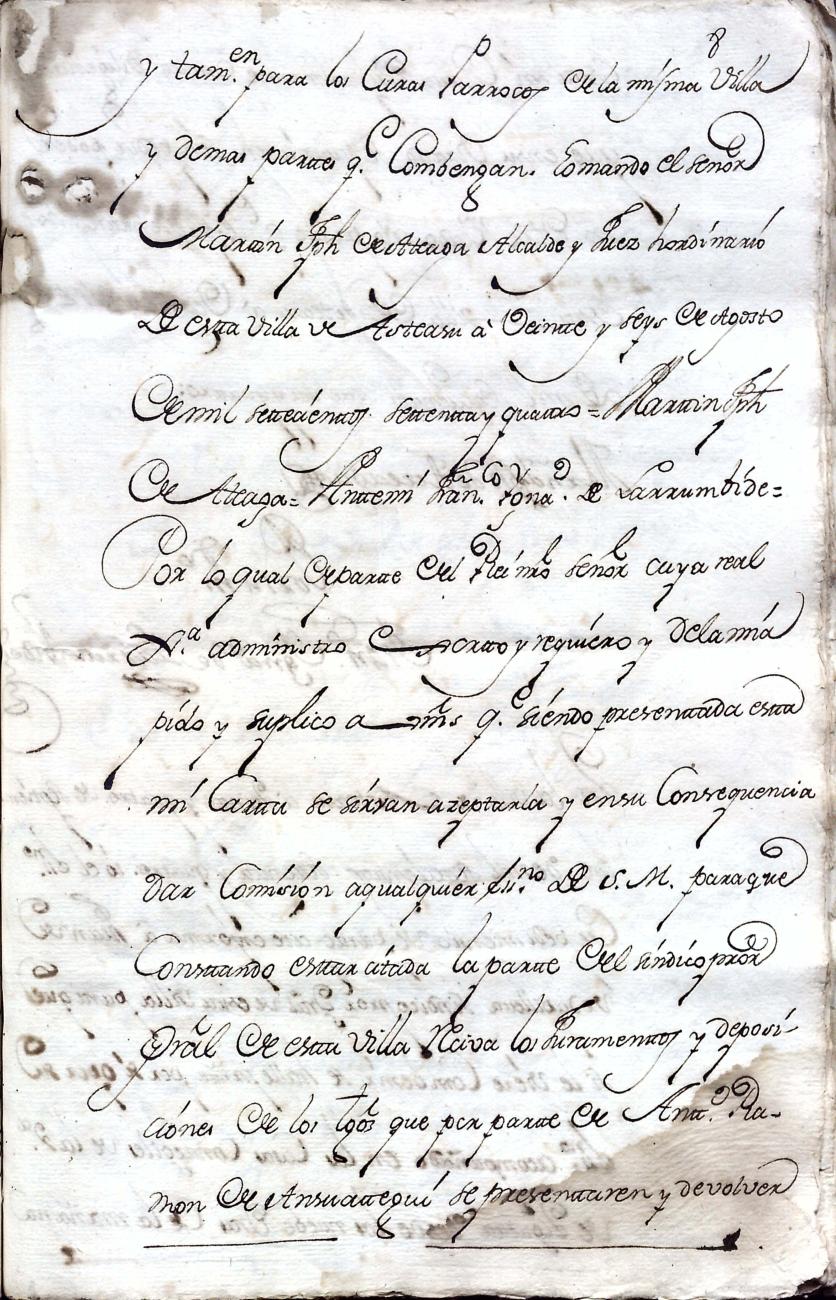 8
y tam.en para los Curas Parrocos de la misma Villa
y demas partes q.e Combengan. Lo mando el señor
Martin Jph de Ateaga Alcalde y Juez hordinario
De esta villa de Asteasu a Veintte y seys de Agosto
de mil settecientos settenta y quattro = Marttin Jph
de Ateaga = Antte mi Fran.co Ygna.o De Larrumbide =
Por lo qual de parte del Rei nro señor cuya real
Jur.a administro exorto y requiero y de la mia
pido y suplico a vms q.e siendo presenttada estta
mi Cartta se sirvan azeptarla y en su Consequencia
dar Comision a qualquier ess.no De S. M. para que
Consttando esttar citada la parte del sindico pror
Gral de estta Villa Reciva los Juramenttos y deposi-
ciones de los tgos que por parte de Antt.o Ra-
mon de Ansuategui se presenttaren y devolver